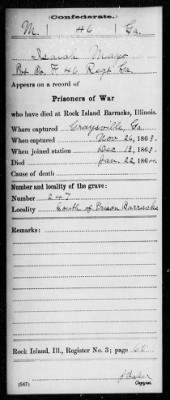 (Confederate.)
M | 46 | Ga.
Isaiah Mayo
Pvt Co. F 46 Regt Ga.
Appears on a record of
Prisoners of War
who have died at Rock Island Barracks, Illinois.
Where captured Graysville, Ga
When captured Nov 26, 1863
When joined station Dec 13, 1863
Died Jan. 22, 186
Cause of death
Number and locality of the grave:
Number 247
Locality South of Prison Barracks
Remarks:
Rock Island, Ill., Register No. 3; page 68
(567)
Copyist.